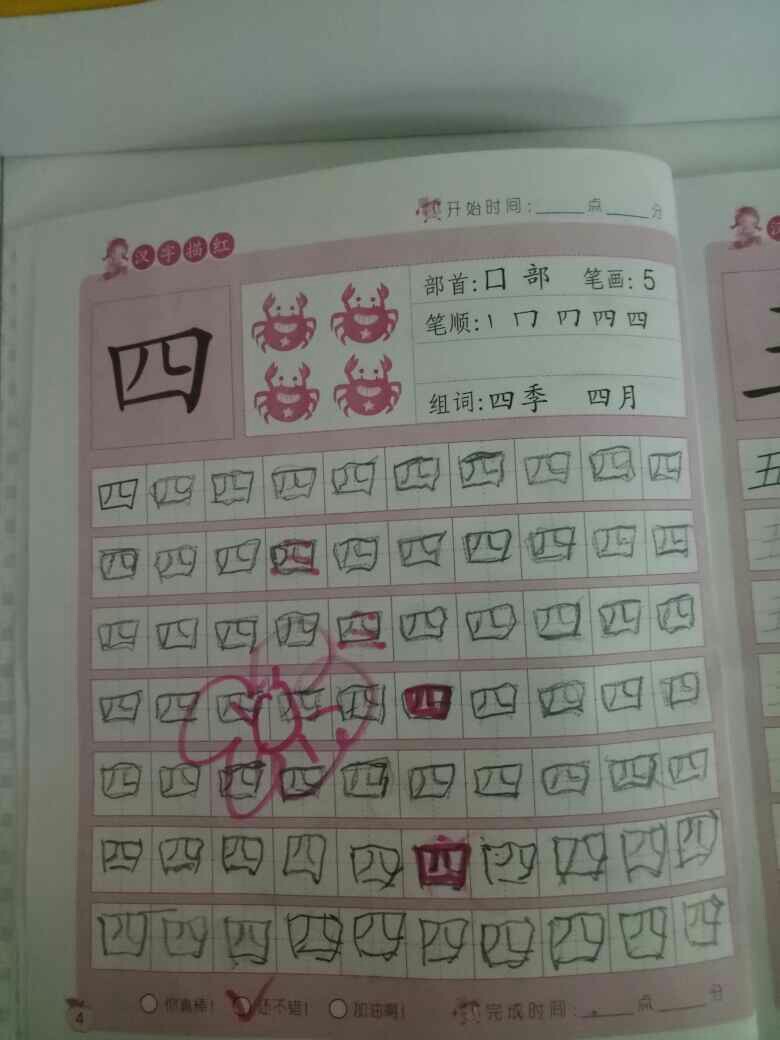 开始时间:____点____分
汉字描红
四
部首:口 部 笔画:5
笔顺:丨 冂 四
组词:四季 四月
四 四 四 四 四 四 四 四 四 四
四 四 四 四 四 四 四 四 四 四
四 四 四 四 四 四 四 四 四 四
四 四 四 四 四 四 四 四 四 四
四 四 四 四 四 四 四 四 四 四
四 四 四 四 四 四 四 四 四 四
四 四 四 四 四 四 四 四 四 四
你真棒! 还不错! 加油啊! 完成时间:____点____分
4
五